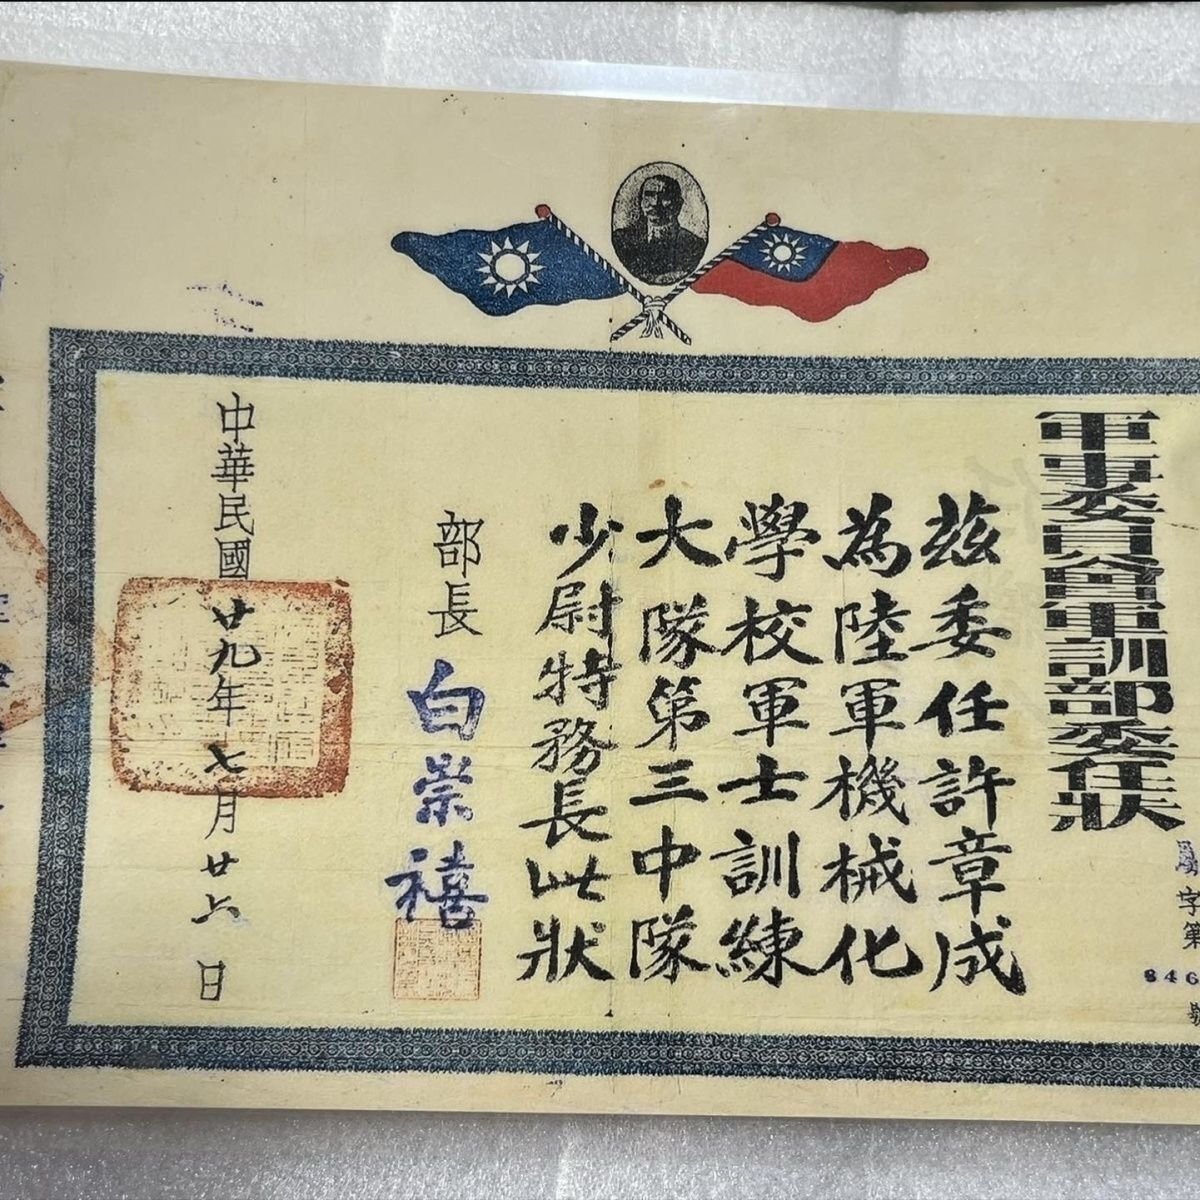 軍事委員會軍訓部委任狀
字第
846
號
茲委任許章成
為陸軍機械化
學校軍士訓練
大隊第三中隊
少尉特務長此狀
部長 白崇禧
中華民國廿九年七月廿六日